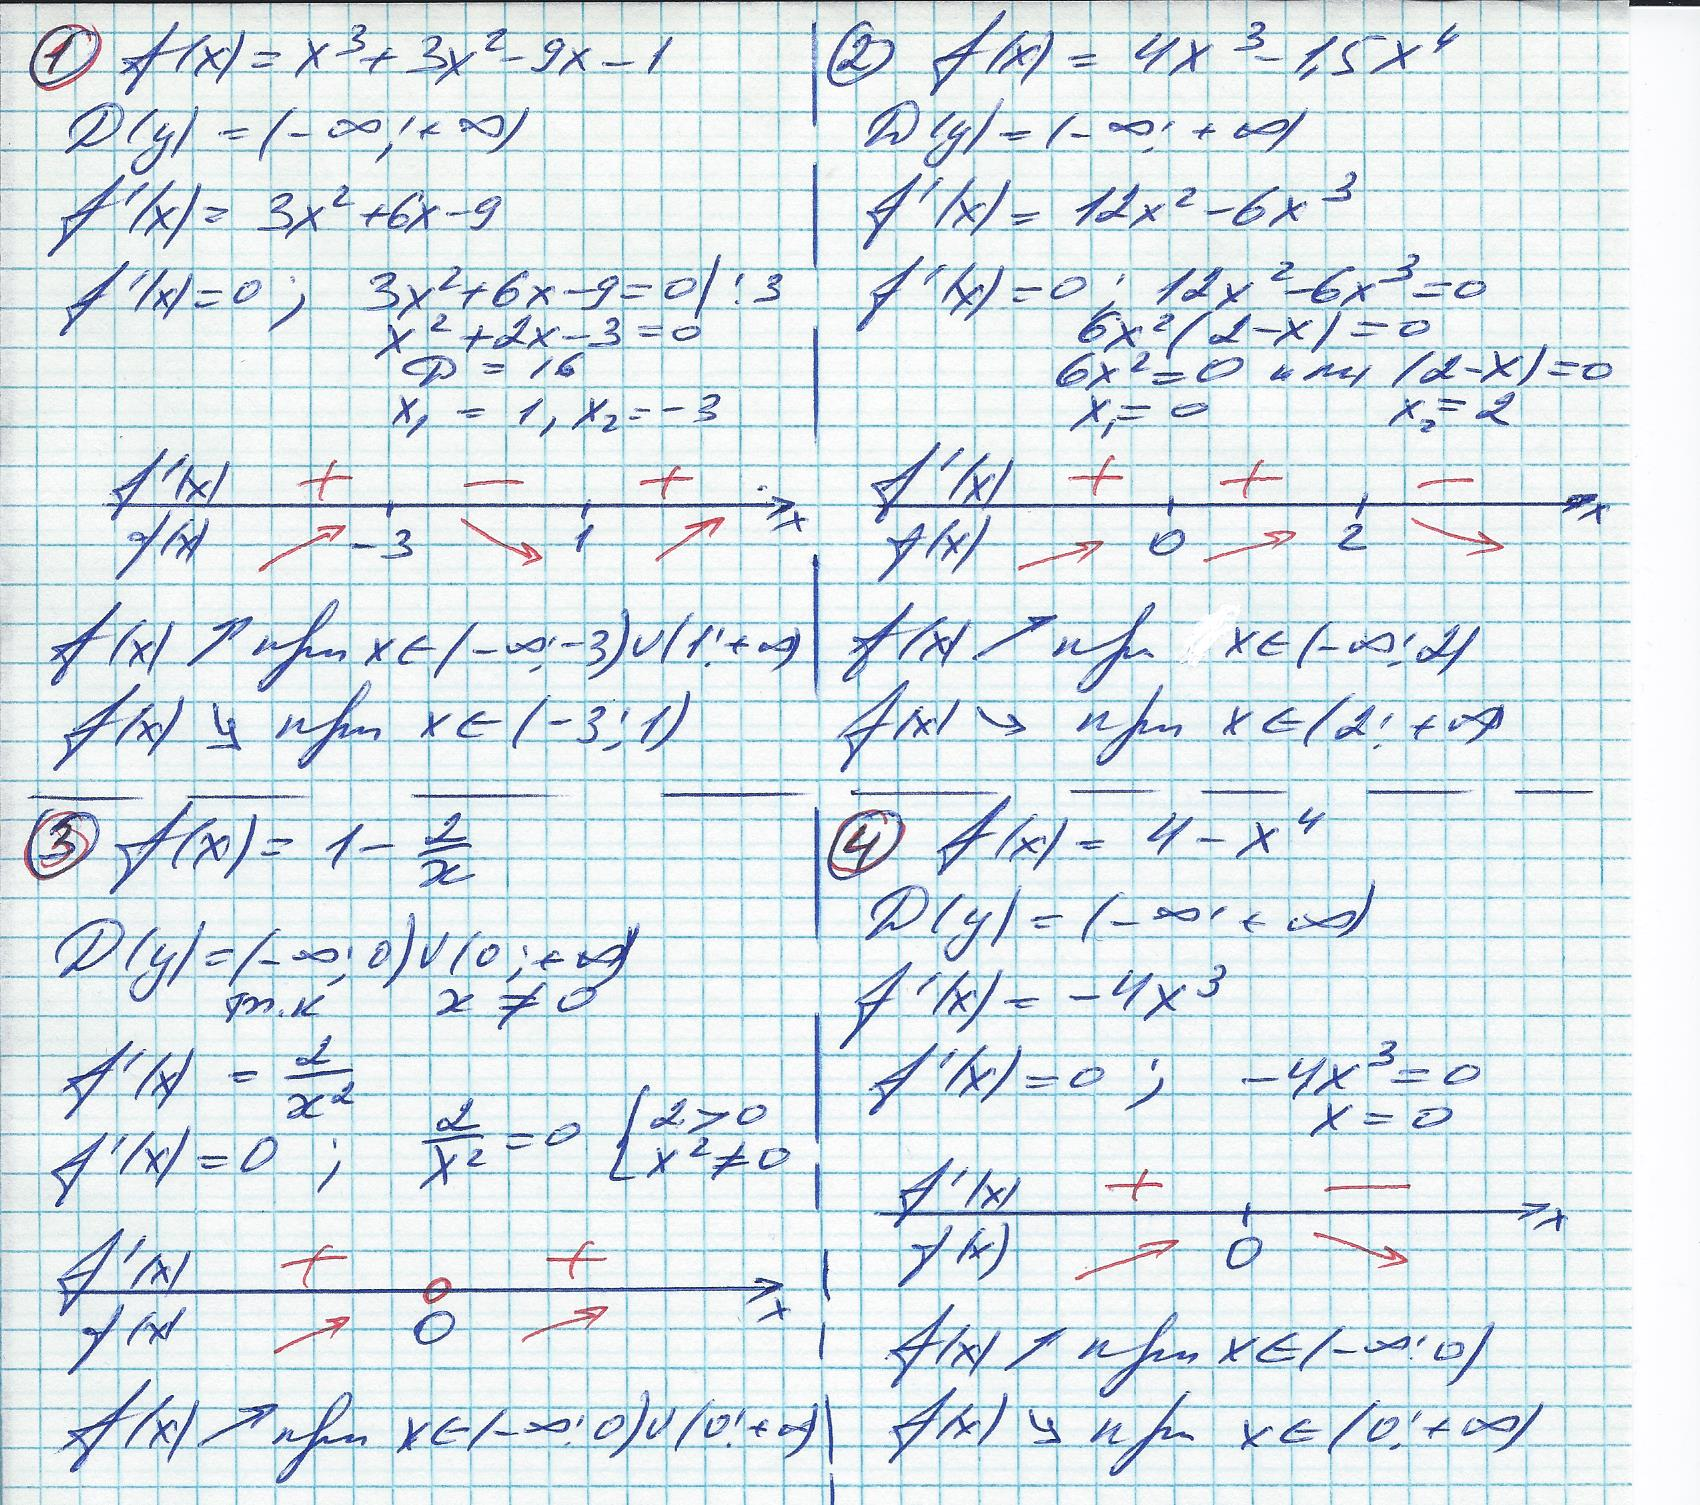 ① f(x) = x³ + 3x² - 9x - 1
D(y) = (-∞; +∞)
f'(x) = 3x² + 6x - 9
f'(x) = 0 ; 3x² + 6x - 9 = 0 | : 3
x² + 2x - 3 = 0
D = 16
x₁ = 1, x₂ = -3
f'(x) + - + x
f(x) -3 1
f(x) ↗ при x ∈ (-∞; -3) ∪ (1; +∞)
f(x) ↘ при x ∈ (-3; 1)
② f(x) = 4x³ - 1,5x⁴
D(y) = (-∞; +∞)
f'(x) = 12x² - 6x³
f'(x) = 0 ; 12x² - 6x³ = 0
6x²(2-x) = 0
6x² = 0 или (2-x) = 0
x₁ = 0 x₂ = 2
f'(x) + + - x
f(x) 0 2
f(x) ↗ при x ∈ (-∞; 2)
f(x) ↘ при x ∈ (2; +∞)
③ f(x) = 1 - 2/x
D(y) = (-∞; 0) ∪ (0; +∞)
т.к x ≠ 0
f'(x) = 2/x²
f'(x) = 0 ; 2/x² = 0 [ 2 > 0
x² ≠ 0
f'(x) + + x
f(x) 0
f(x) ↗ при x ∈ (-∞; 0) ∪ (0; +∞)
④ f(x) = 4 - x⁴
D(y) = (-∞; +∞)
f'(x) = -4x³
f'(x) = 0 ; -4x³ = 0
x = 0
f'(x) + - x
f(x) 0
f(x) ↗ при x ∈ (-∞; 0)
f(x) ↘ при x ∈ (0; +∞)